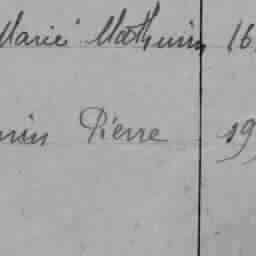 Marie Mathurin 16
Pierre 19